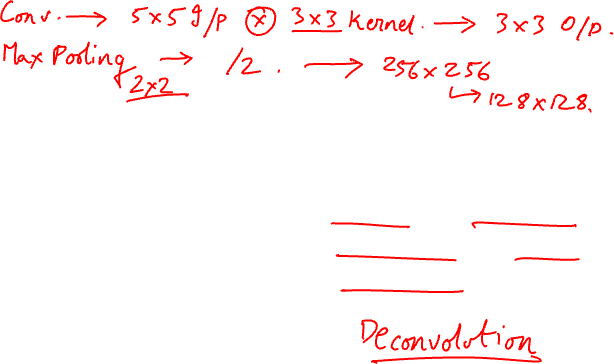 Conv. → 5x5 I/p ⊗ 3x3 Kernel. → 3x3 O/p.
Max Pooling → /2. → 256x256
2x2 ↳ 128x128.
Deconvolution